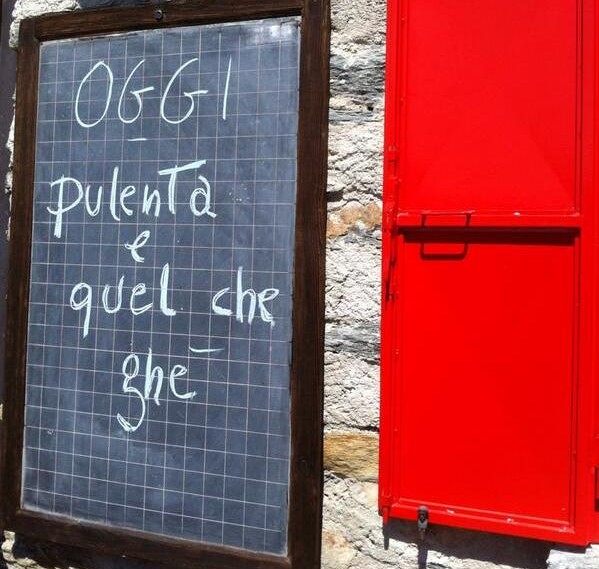 OGGI
pulenta
e
quel che
ghē